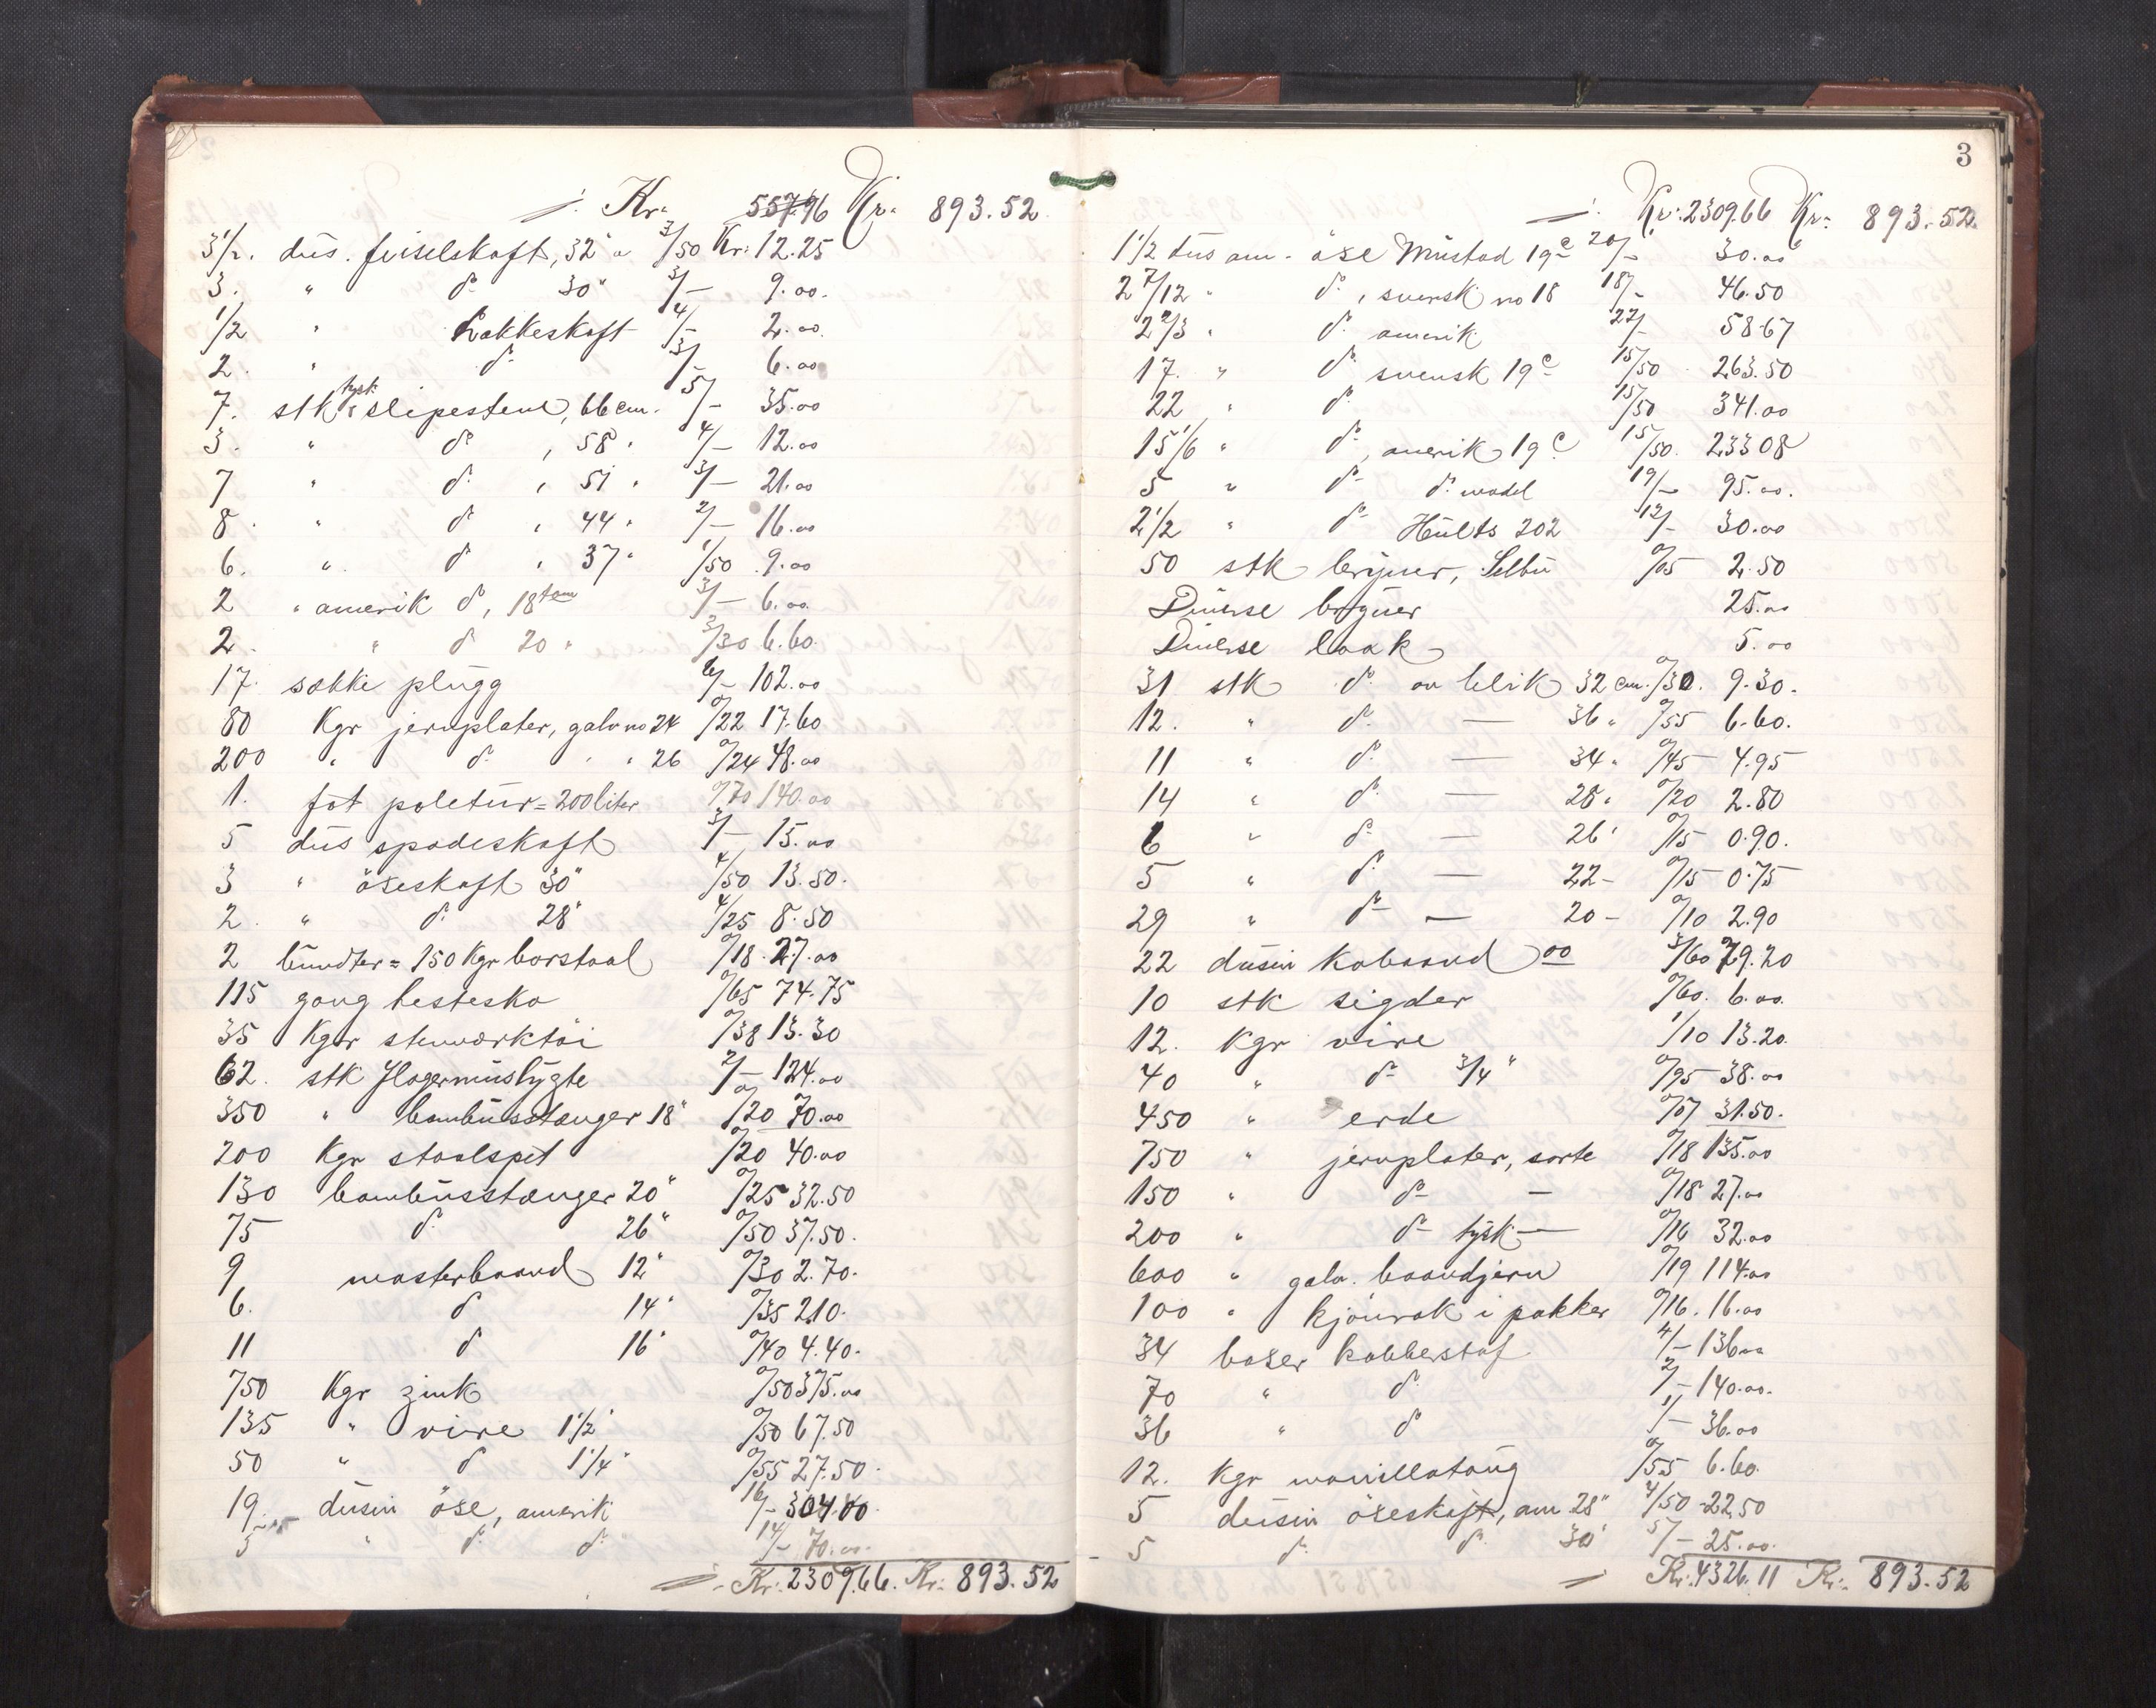 ./. Kr: 557.96 Kr: 893.52
3 1/2. dus. feiselskaft, 32" a 3/50 Kr: 12.25
3. " do 30" 3/- 9.00.
1/2 " Hakkeskaft 4/- 2.00.
2. " do 3/- 6.00
7. stk tysk slipestene, 66 cm. 5/- 35.00
3. " do , 58 " 4/- 12.00
7 " do , 51 " 3/- 21.00
8. " do , 44 " 2/- 16.00
6. " do , 37 " 1/50 9.00
2 " amerik do, 18 tom 3/- 6.00.
2. " do 20 " 3/30 6.60.
17. sække plugg 6/- 102.00
80 Kgr jernplater, galv no 24 0/22 17.60
200 " do " " 26 0/24 48.00
1. fat poletur = 200 liter 0/70 140.00
5 dus spadeskaft 3/- 15.00
3 " öxeskaft 30" 4/50 13.50.
2. " do 28" 4/25 8.50
2 bundter = 150 Kgr borstaal 0/18 27.00
115 gang hestesko 0/65 74.75
35 Kgr stenværktöi 0/38 13.30
62. stk flagermuslygte 2/- 124.00
350 " bambusstænger 18" 0/20 70.00
200 Kgr staalspet 0/20 40.00
130 bambusstænger 20" 0/25 32.50
75 do 26" 0/50 37.50.
9 masterbaand 12" 0/30 2.70.
6. do 14" 0/35 2.10.
11 do 16" 0/40 4.40.
750 Kgr zink 0/50 375.00
135 " vire 1 1/2" 0/50 67.50
50 " do 1 1/4" 0/55 27.50.
19. dusin öxe, amerik 16/- 304.00.
5 " do do 14/- 70.00.
./. Kr: 2309.66. Kr: 893.52
3
./. Kr: 2309.66 Kr: 893.52.
1 1/2 dus am. öxe Mustad 19c 20/- 30.00
2 7/12 " do, svensk no 18 18/- 46.50
2 2/3 " do amerik 22/- 58.67
17. " do svensk 19c 15/50 263.50
22 " do 15/50 341.00
15 1/6 " do, amerik 19c 15/50. 233 08
5 " do do model 19/- 95.00.
2 1/2 " do Hults 202 12/- 30.00
50 stk bryner, Selbu 0/05 2.50
Diverse bryner 25.00
Diverse laak 5.00
31 stk do av blik 32 cm. 0/30. 9.30.
12. " do — 36 " 0/55 6.60.
11 " do — 34 " 0/45 4.95
14 " do — 28 " 0/20 2.80
6 " do — 26 " 0/15 0.90.
5 " do — 22 - 0/15 0.75
29 " do — 20 - 0/10 2.90
22 dusin kobaand 00 3/60 79.20
10 stk sigder 0/60. 6.00.
12. Kgr vire 1/10 13.20.
40 " do 3/4" 0/95 38.00
450 " erde 0/07 31.50.
750 " jernplater, sorte 0/18 135.00
150 " do - 0/18 27.00
200 " do tysk — 0/16 32.00
600 " galv. baandjern 0/19 114.00
100 " kjönrök i pakker 0/16. 16.00
34 baser kobberstöf 4/- 136.00
70 " do 2/- 140.00.
36 " do 1/- 36.00
12. Kgr manillataug 0/55 6.60.
5 dusin öxeskaft, am 28" 4/50 22.50
5 do do 30" 5/- 25.00.
./. Kr: 4326.11 Kr: 893.52